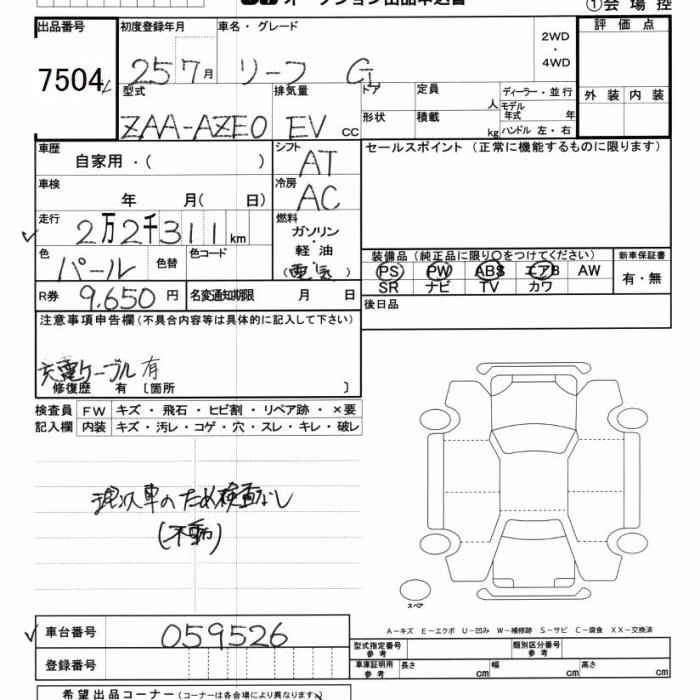 オークション出品申込書
①会場控
出品番号 7504
初度登録年月 25 7月
車名・グレード リーフ G
2WD・4WD
評価点
外装 内装
型式 ZAA-AZE0
排気量 EV CC
ドア
形状
定員 人
積載 kg
ディーラー・並行
モデル年式 年
ハンドル 左・右
車歴 自家用・( )
シフト AT
セールスポイント (正常に機能するものに限ります)
車検 年 月( 日)
冷房 AC
走行 2万2千311km
燃料 ガソリン・軽油 (電気)
色 パール 色替
色コード
装備品(純正品に限り○をつけてください)
PS PW ABS エアB AW
SR ナビ TV カワ
新車保証書 有・無
R券 9,650円
名変通知期限 月 日
後日品
注意事項申告欄(不具合内容等は具体的に記入して下さい)
充電ケーブル有
修復歴 有 〔箇所 〕
検査員 FW キズ・飛石・ヒビ割・リペア跡・×要
記入欄 内装 キズ・汚レ・コゲ・穴・スレ・キレ・破レ
現状車のため検査なし
(不動)
スペア
車台番号 059526
登録番号
A−キズ E−エクボ U−凹み W−補修跡 S−サビ C−腐食 XX−交換済
型式指定番号 参考
類別区分番号 参考
車庫証明用 参考 長さ cm 幅 cm 高さ cm
希望出品コーナー(コーナーは各会場により異なります)